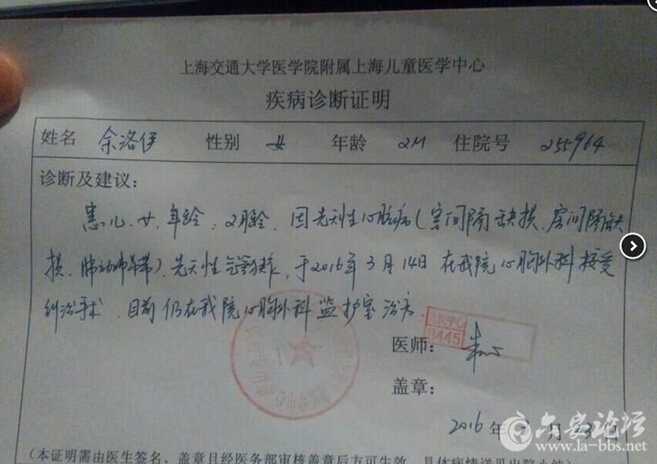 上海交通大学医学院附属上海儿童医学中心
疾病诊断证明
姓名 余洛伊 性别 女 年龄 2M 住院号 255964
诊断及建议:
患儿,女,年龄:2月龄,因先天性心脏病(室间隔缺损,房间隔缺
损,肺动脉),先天性气管狭窄,于2016年3月14日在我院心胸外科接受
纠治手术,目前仍在我院心胸外科监护室治疗。
医师:
0445
盖章:
2016年 月
(本证明需由医生签名、盖章且经医务部审核盖章后方可生效,具体病情
六安论坛
www.la-bbs.net